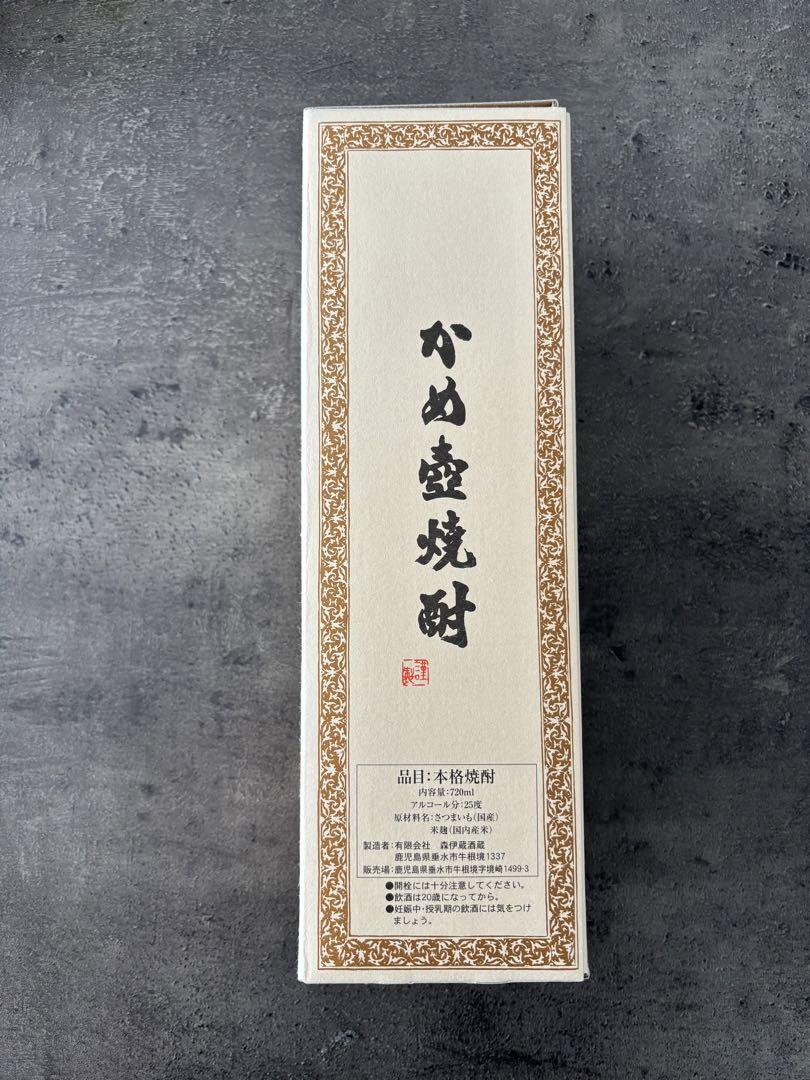 かめ壺焼酎
謹製
品目：本格焼酎
内容量：720ml
アルコール分：25度
原材料名：さつまいも（国産）
米麹（国内産米）
製造者：有限会社　森伊蔵酒蔵
鹿児島県垂水市牛根境1337
販売場：鹿児島県垂水市牛根境字境崎1499-3
●開栓には十分注意してください。
●飲酒は20歳になってから。
●妊娠中・授乳期の飲酒には気をつけ
ましょう。